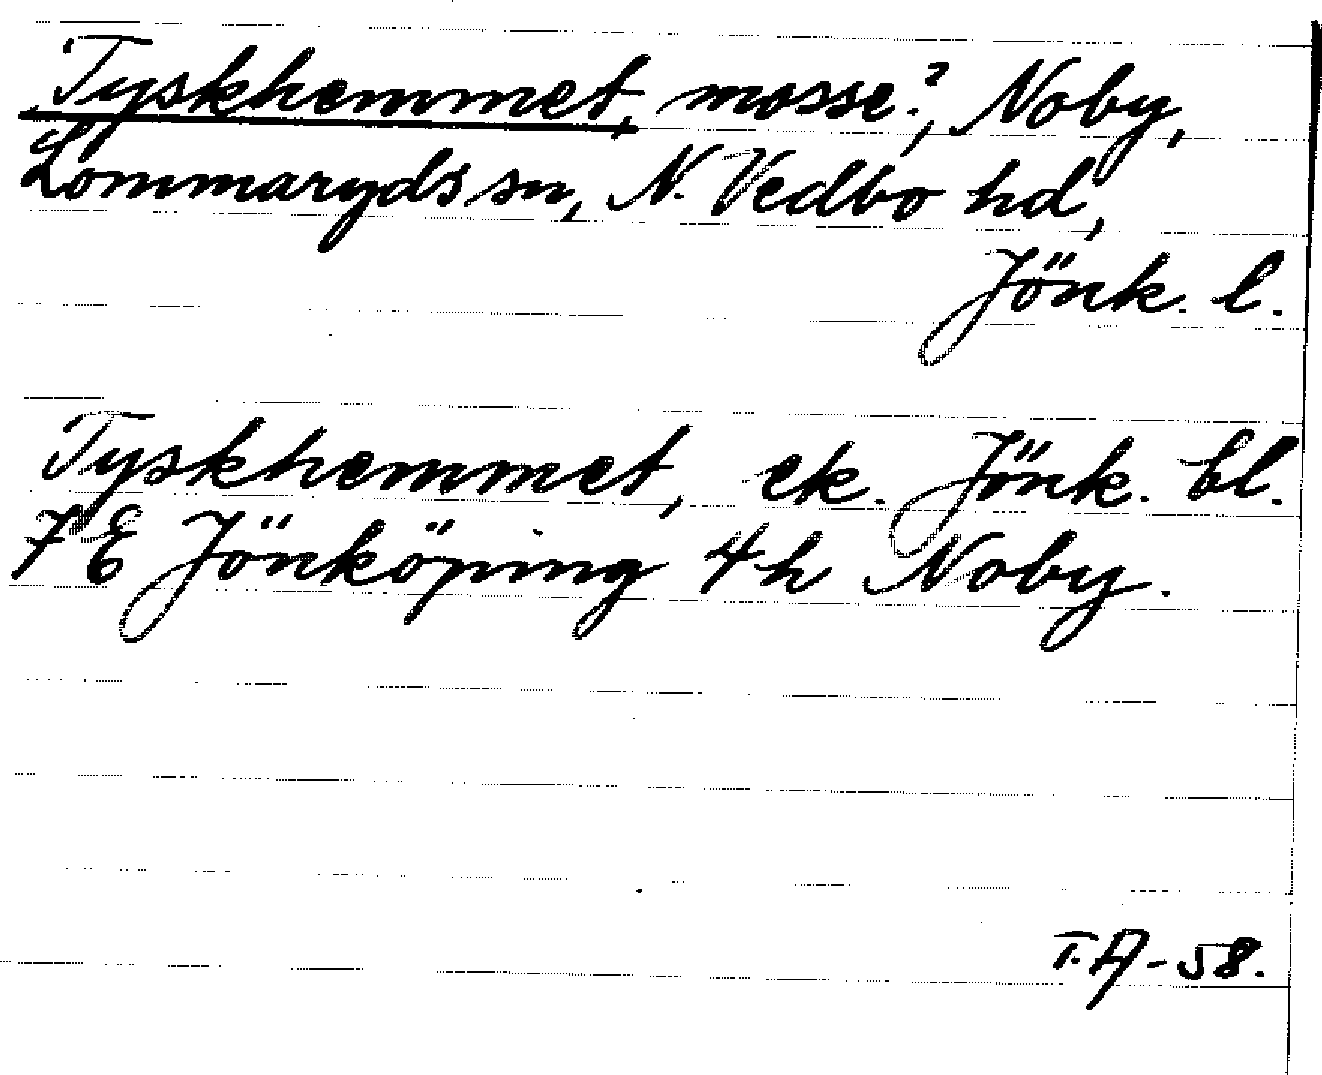 Tyskhemmet, mosse?, Noby,
Lommaryds sn, N. Vedbo hd,
Jönk. l.
Tyskhemmet, ek. Jönk. bl.
7 E Jönköping 4 h Noby.
T.A-58.